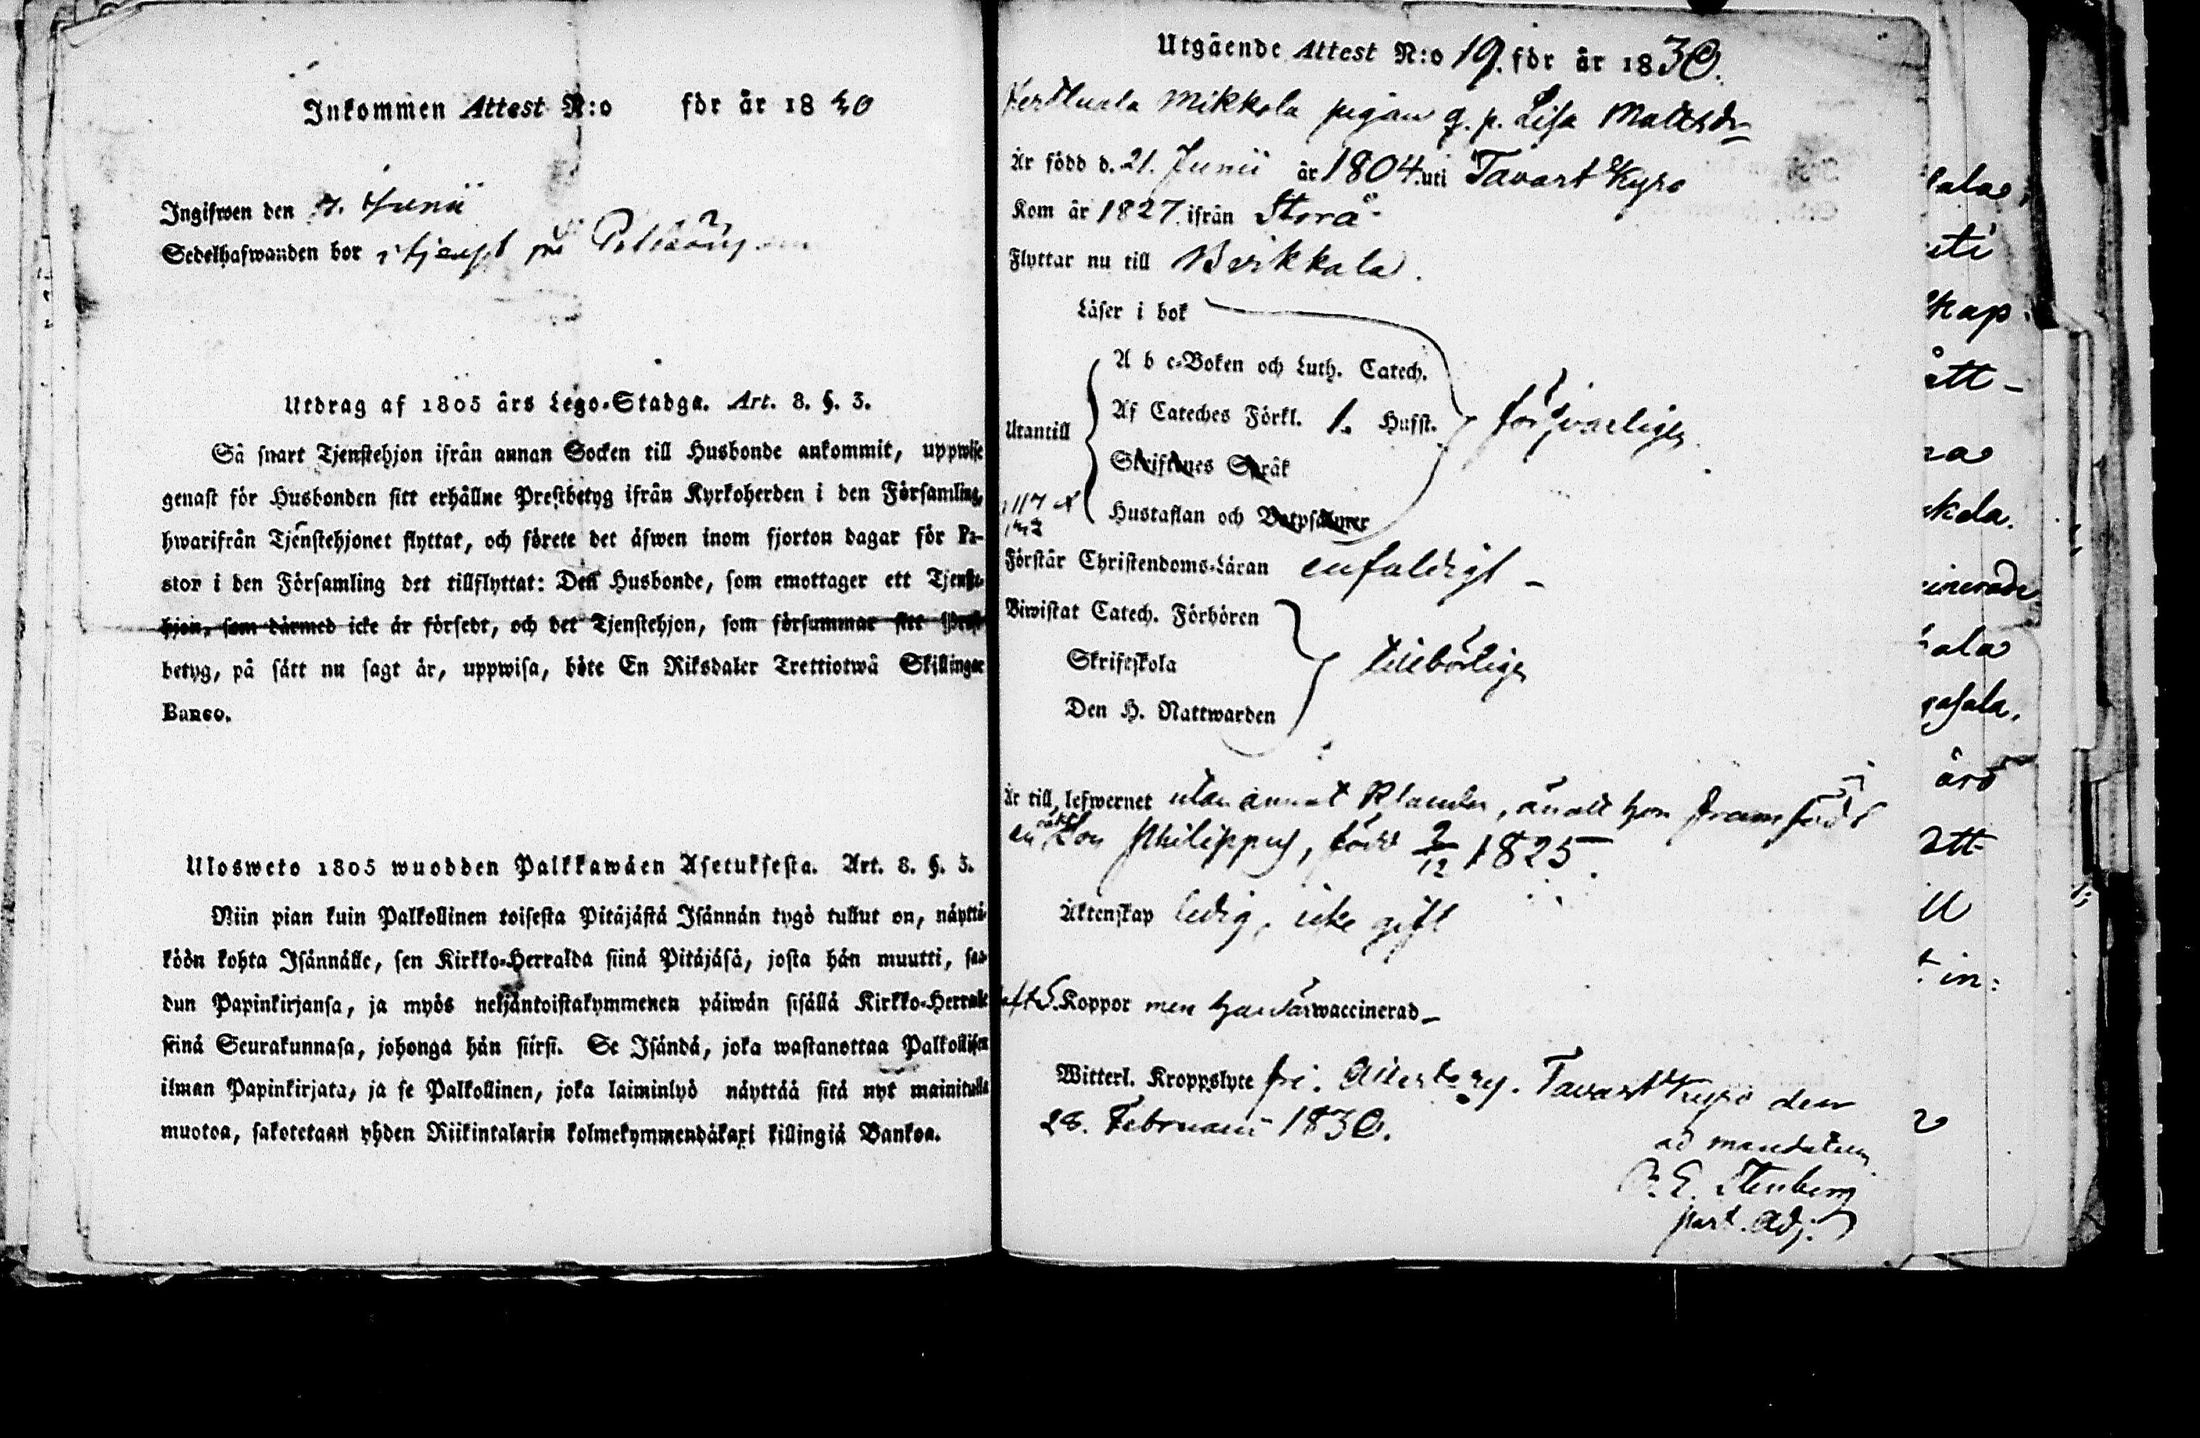 Inkommen Attest N:o för år 1830
Ingifwen den 7. Junii
Sedelhafwanden bor i tjenst på
Utdrag af 1805 års Lego-Stadga. Art. 8. §. 3.
Så snart Tjenstehjon ifrån annan Socken till Husbonde ankommit, uppwise
genast för Husbonden sitt erhållne Prestbetyg ifrån Kyrkoherden i den Församling,
hwarifrån Tjenstehjonet flyttat, och förete det äfwen inom fjorton dagar för Pa-
stor i den Församling det tillflyttat: Den Husbonde, som emottager ett Tjenste-
hjon, som därmed icke är försedt, och det Tjenstehjon, som försummar sitt Prest-
betyg, på sätt nu sagt är, uppwisa, böte En Riksdaler Trettiotwå Skillingar
Banco.
Ulosweto 1805 wuodden Palkkawäen Asetuksesta. Art. 8. §. 3.
Niin pian kuin Palkollinen toisesta Pitäjästä Isännän tygö tullut on, näyttä-
köön kohta Isännälle, sen Kirkko-Herralda siinä Pitäjäsä, josta hän muutti, saa-
dun Papinkirjansa, ja myös neljäntoistakymmenen päiwän sisällä Kirkko-Herralle
siinä Seurakunnasa, johonga hän siirsi. Se Isändä, joka wastanottaa Palkollisen
ilman Papinkirjata, ja se Palkollinen, joka laiminlyö näyttää sitä nyt mainitulla
muotoa, sakotetaan yhden Riikintalarin kolmekymmendäkaxi killingiä Bankoa.
Utgående Attest N:o 19. för år 1830.
Mikkola pigan q. p. Lisa Mattsdr
Är född d. 21. Junii år 1804. uti Tavast Kyro
Kom år 1827. ifrån Storå
Flyttar nu till Birkkala.
Läser i bok
A b c-Boken och Luth. Catech.
Utantill Af Cateches Förkl. 1. Hufst. försvarligen
Skriftenes Språk
Hustaflan och Botpsalmer
Förstår Christendoms-Läran enfaldigt -
Biwistat Catech. Förhören
Skriftskola tillbörligen
Den H. Nattwarden
Är till lefwernet utan annat klander, än att hon framfödt
en oäkt Son Philippus, född 2/12 1825.
Äktenskap ledig, icke gift
haft S. Koppor men hon är waccinerad -
Witterl. Kroppslyte fri. Attesteras. Tavast Kyro den
28. Februarii 1830.
ad mandatum
E. Stenberg
past. Adj.